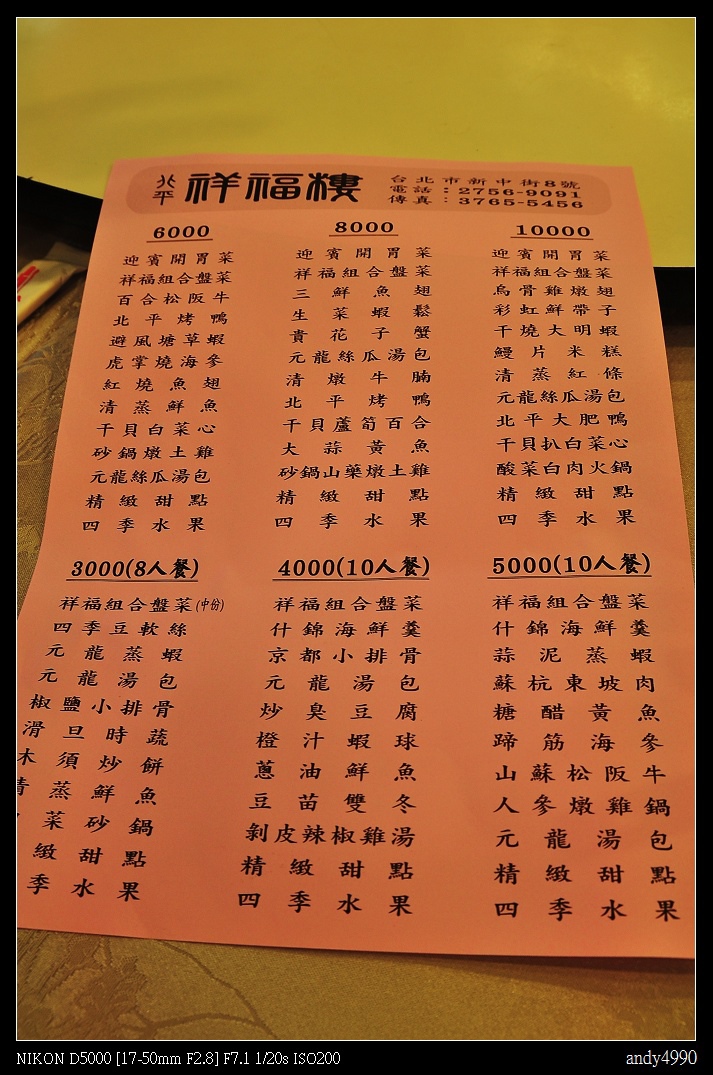 北平 祥福樓
台北市新中街8號
電話：2756-9091
傳真：3765-5456
6000
迎賓開胃菜
祥福組合盤菜
百合松阪牛
北平烤鴨
避風塘草蝦
虎掌燒海參
紅燒魚翅
清蒸鮮魚
干貝白菜心
砂鍋燉土雞
元龍絲瓜湯包
精緻甜點
四季水果
8000
迎賓開胃菜
祥福組合盤菜
三鮮魚翅
生菜蝦鬆
貴花子蟹
元龍絲瓜湯包
清燉牛腩
北平烤鴨
干貝蘆筍百合
大蒜黃魚
砂鍋山藥燉土雞
精緻甜點
四季水果
10000
迎賓開胃菜
祥福組合盤菜
烏骨雞燉翅
彩虹鮮帶子
干燒大明蝦
鰻片米糕
清蒸紅條
元龍絲瓜湯包
北平大肥鴨
干貝扒白菜心
酸菜白肉火鍋
精緻甜點
四季水果
3000(8人餐)
祥福組合盤菜(中份)
四季豆軟絲
元龍蒸蝦
元龍湯包
椒鹽小排骨
滑旦時蔬
木須炒餅
清蒸鮮魚
菜砂鍋
緻甜點
季水果
4000(10人餐)
祥福組合盤菜
什錦海鮮羹
京都小排骨
元龍湯包
炒臭豆腐
橙汁蝦球
蔥油鮮魚
豆苗雙冬
剝皮辣椒雞湯
精緻甜點
四季水果
5000(10人餐)
祥福組合盤菜
什錦海鮮羹
蒜泥蒸蝦
蘇杭東坡肉
糖醋黃魚
蹄筋海參
山蘇松阪牛
人參燉雞鍋
元龍湯包
精緻甜點
四季水果
NIKON D5000 [17-50mm F2.8] F7.1 1/20s ISO200
andy4990